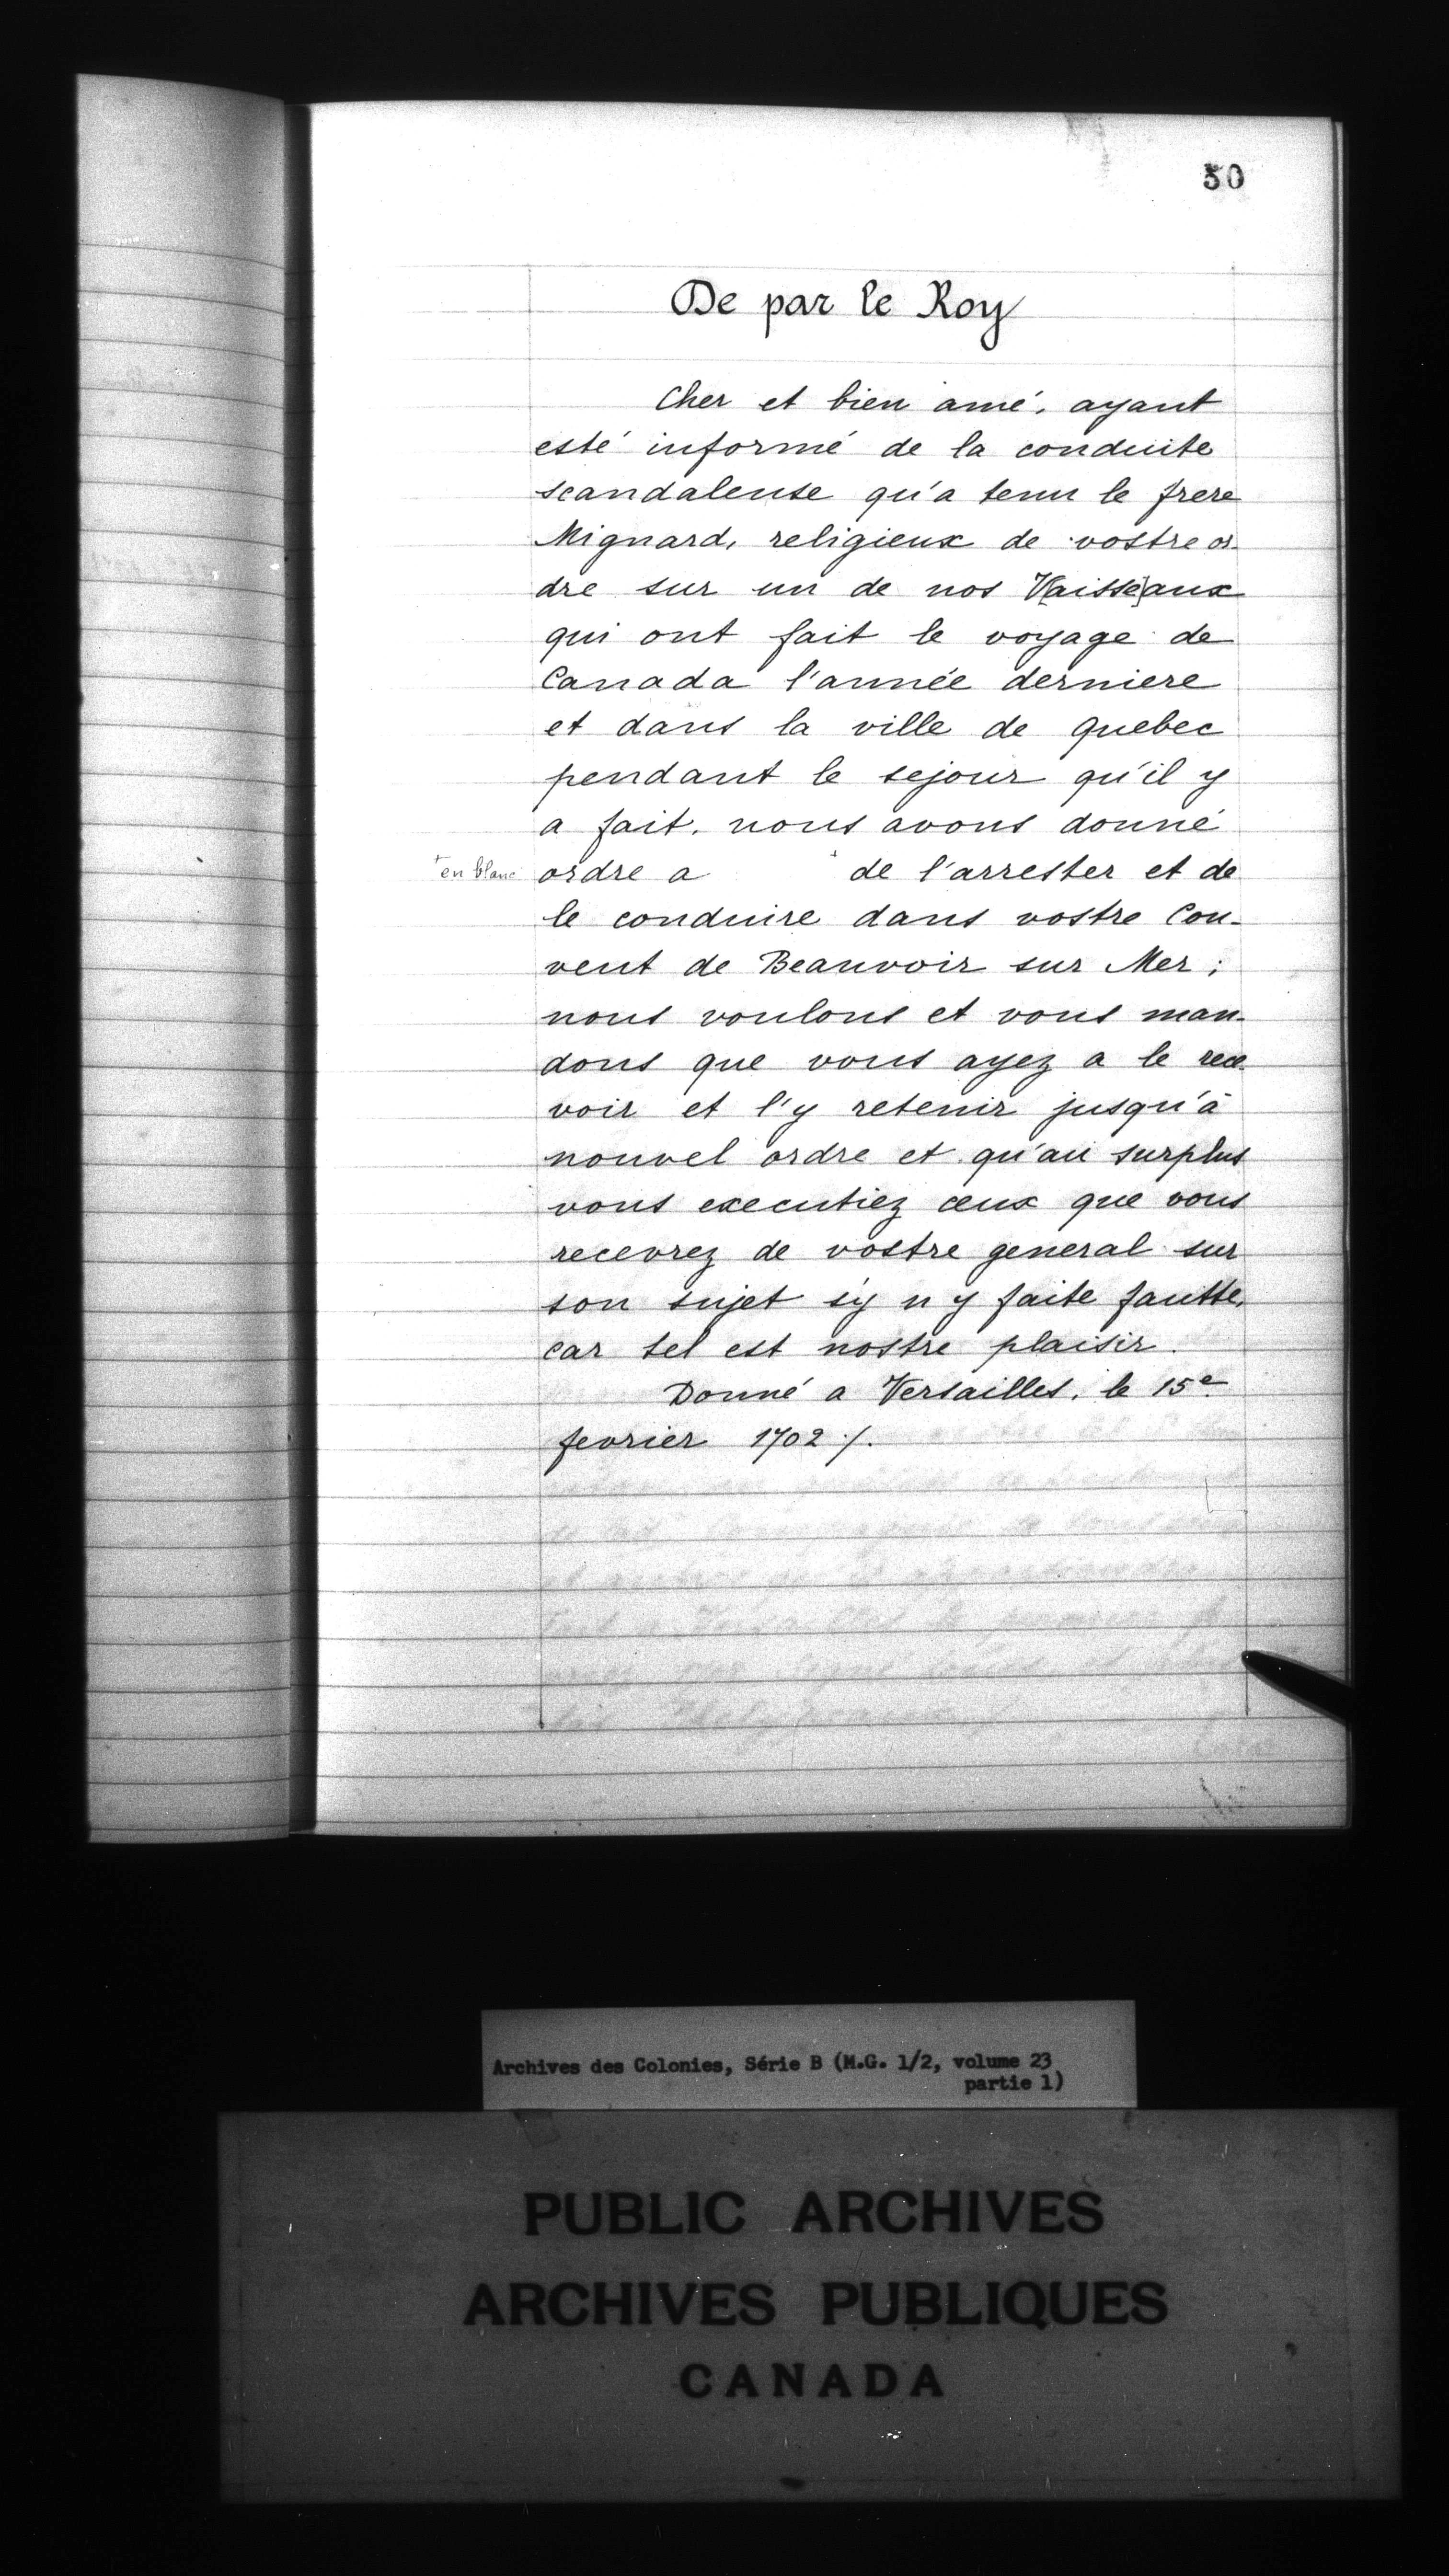 50
De par le Roy
Cher et bien amé, ayant
esté informé de la conduite
scandaleuse qu'a tenu le frere
Mignard, religieux de vostre or-
dre sur un de nos V[aisse]aux
qui ont fait le voyage de
Canada l'année derniere
et dans la ville de quebec
pendant le sejour qu'il y
a fait, nous avons donné
+ en blanc ordre a + de l'arrester et de
le conduire dans vostre Cou-
vent de Beauvoir sur Mer ;
nous voulons et vous man-
dons que vous ayez a le rece-
voir et l'y retenir jusqu'à
nouvel ordre et qu'au surplus
vous executiez ceux que vous
recevrez de vostre general sur
son sujet sy n y faite fautte,
car tel est nostre plaisir.
Donné a Versailles, le 15e
fevrier 1702 ./.
Archives des Colonies, Série B (M.G. 1/2, volume 23
partie 1)
PUBLIC ARCHIVES
ARCHIVES PUBLIQUES
CANADA